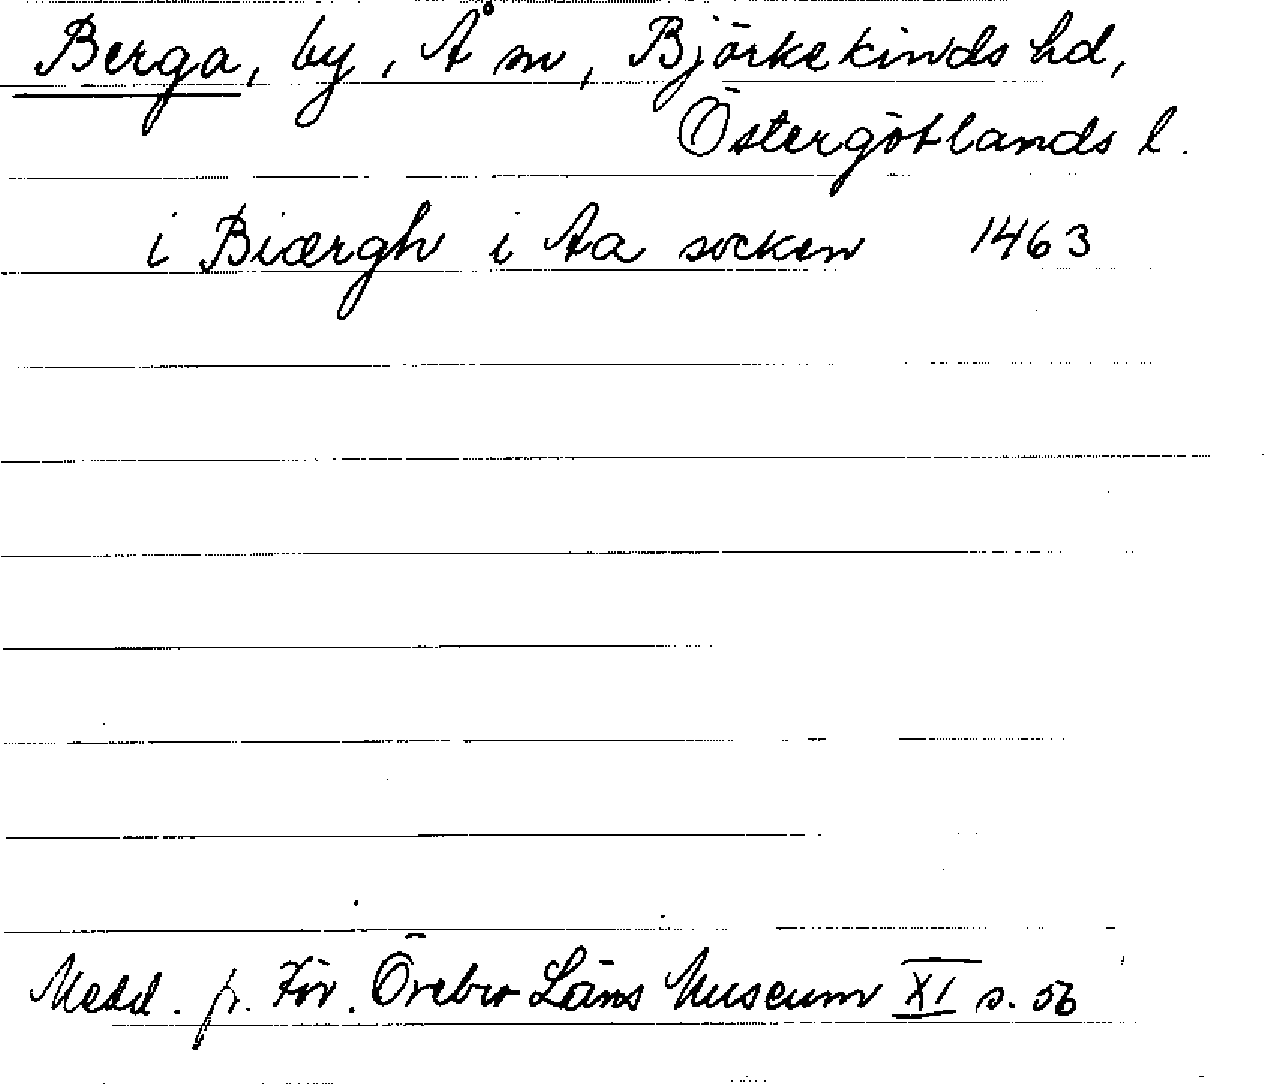 Berga, by, Å sn, Björkekinds hd,
Östergötlands l.
i Biærgh i Aa socken 1463
Medd. fr. För. Örebro Läns Museum XI s. 56